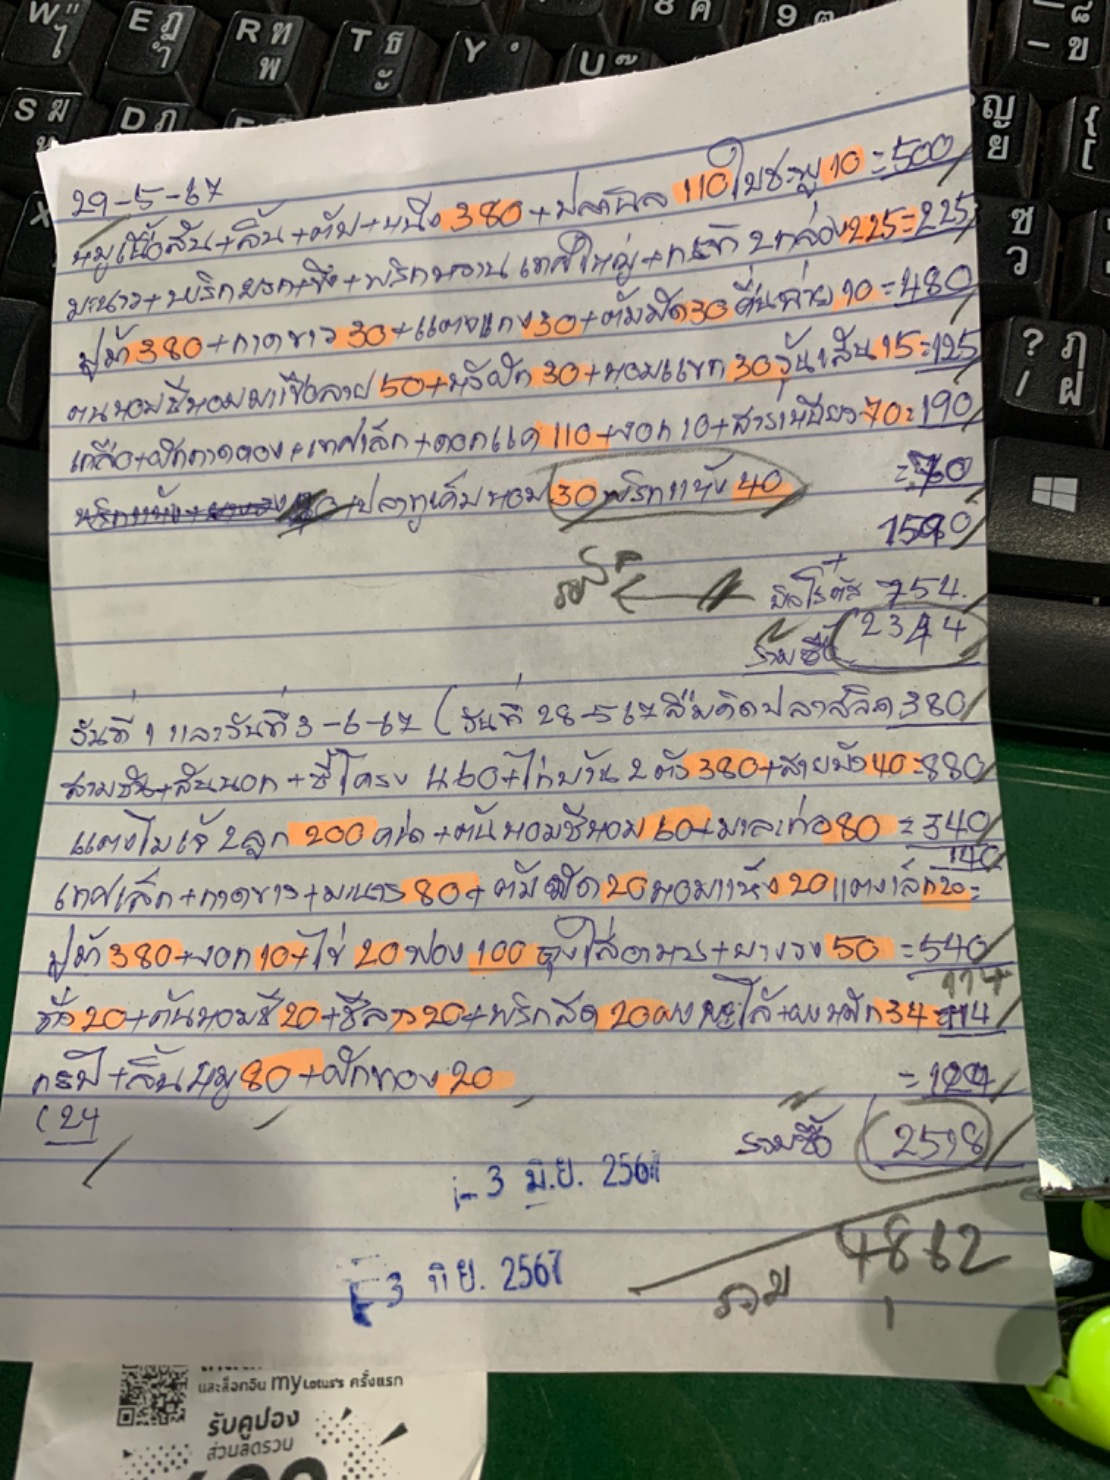 29-5-67
หมูเนื้อสัน+ลิ้น+ตับ+หนึง 380+ปลานิล 110 ใบชะพู 10 =500
มะนาว+พริกหยวก+ขิง+พริกหวาน เทศใหญ่+กะทิ 2กล่อง 225=225
ปูม้า 380+กาดขาว 30+แตงแกง 30+ตั้มผัด 30 คื่นฉ่าย 10 =480
ต้นหอมชีหอม มะเขือลาย 50+ 30+หอมแขก 30 วุ้นเส้น 15=125
เกลือ+ผักกาดดอง+เทศเล็ก+ดอกแค 110+งอก 10+สาระแหน่ 70=190
+ปลาทูเค็มหอม 30 พริกแห้ง 40 =70
1590
บิลโรตัส 754.
รวมซื้อ 2344
วันที่ 1 และวันที่ 3-6-67 (วันที่ 28-5-67 ลืมคิดปลาสลิด 380
สามชั้น+สันนอก+ซี่โครง 460+ไก่บ้าน 2 ตัว 380+สายบัว 40=880
แตงโมเจ้ 2ลูก 200 +ต้นหอมชีหอม 60+มาละเท่อ 80 =340
140
เทศเล็ก+กาดขาว+มะนาว 80+ ตั้มผัด 20 หอมแห้ง 20 แตงเล็ก 20=
ปูม้า 380+งอก 10+ไข่ 20ฟอง 100 ถุงใส่อาหาร+ยางวง 50 =540
114
ถั่ว 20+ต้นหอมชี 20+ชีลาว 20+พริกสด 20 ผงพะโล้+ผงหมัก 34=114
กะปิ+ลิ้นหมู 80+ฟักทอง 20 =124
(24
รวมซื้อ 2518
-3 มิ.ย. 2567
-3 มิ.ย. 2567
รวม 4862
และล็อกอิน my Lotus's ครั้งแรก
รับคูปอง
ส่วนลดรวม
W " ไ
E ฎ ำ
R ฑ พ
T ธ ะ
Y
U
S ฆ
D ฏ
X
ญ ย
[
ซ ว
? ฦ
/ ฝ